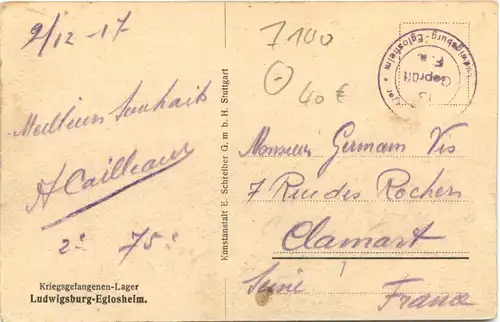 2/12-17
Meilleurs Souhaits
A Cailleaux
2e 75e
Kriegsgefangenen-Lager
Ludwigsburg-Eglosheim.
Kunstanstalt E. Schreiber G. m b. H. Stuttgart
7100
40 €
Ludwigsburg-Eglosheim
F. a.
Geprüft
Monsieur Germain Vis
7 Rue des Rochers
Clamart
Seine
France